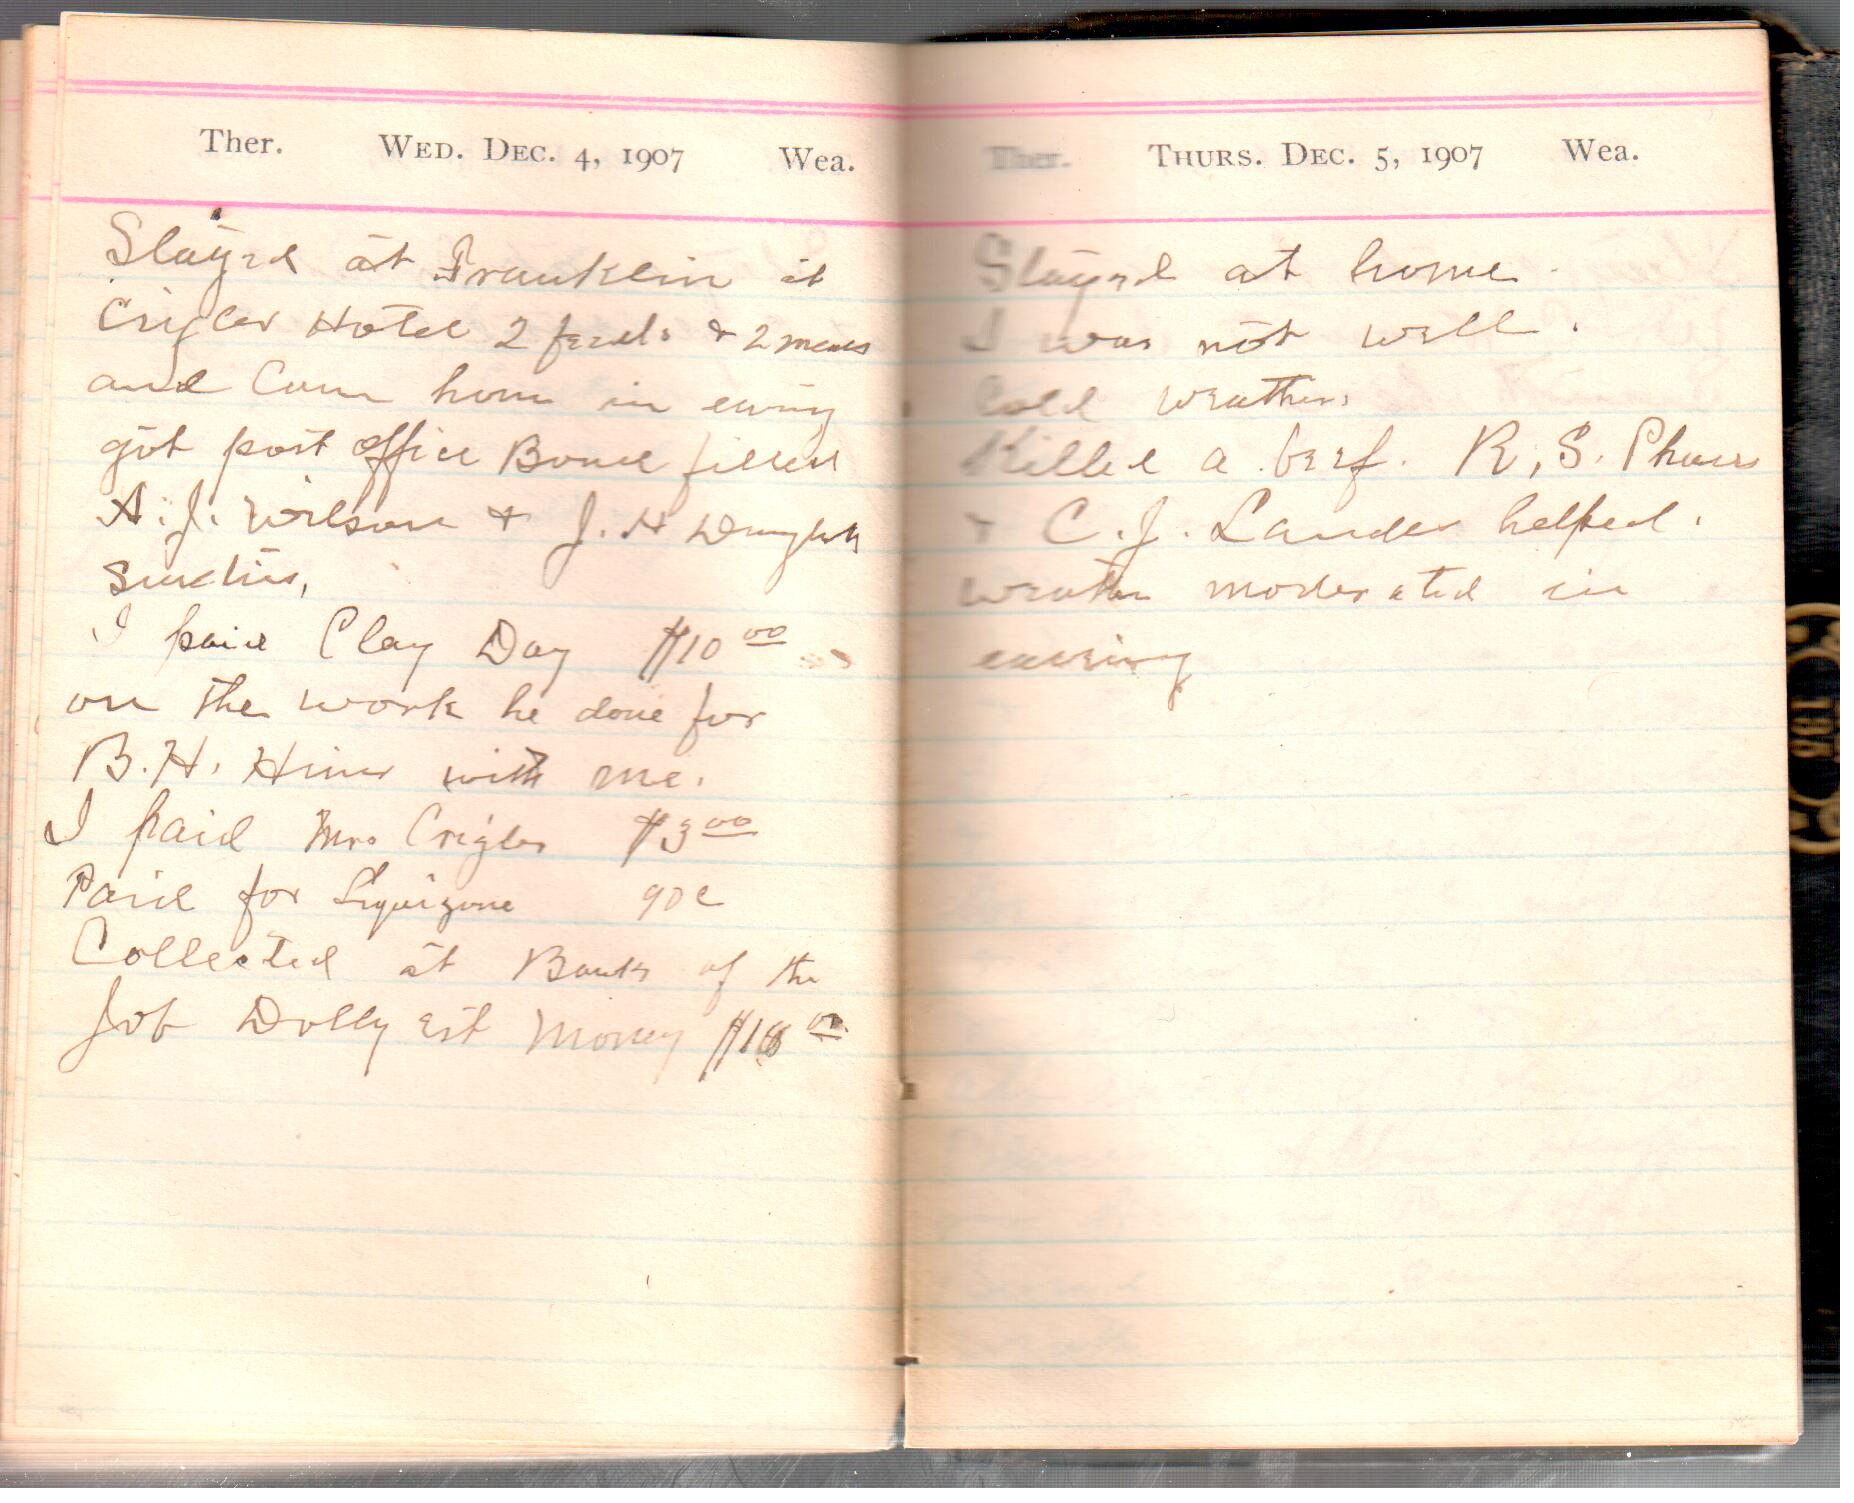 Ther. WED. DEC. 4, 1907 Wea.
Stayed at Franklin at
Crigler Hotel 2 feeds & 2 meals
and Cum home in eving
got post office Bond filled
A. J. Wilson & J. H
I paid Clay Day $10 00
on the work he done for
B. H. Hiner with me.
I paid Mrs Crigler $3 00
Paid for Liquizone 90c
Collected at Bank of the
Job Dolly Est Money
Ther. THURS. DEC. 5, 1907 Wea.
Stayed at home
I was not well.
Cold weather.
Killed a beef. R. S.
& C. J. Landes helped.
weather moderated in